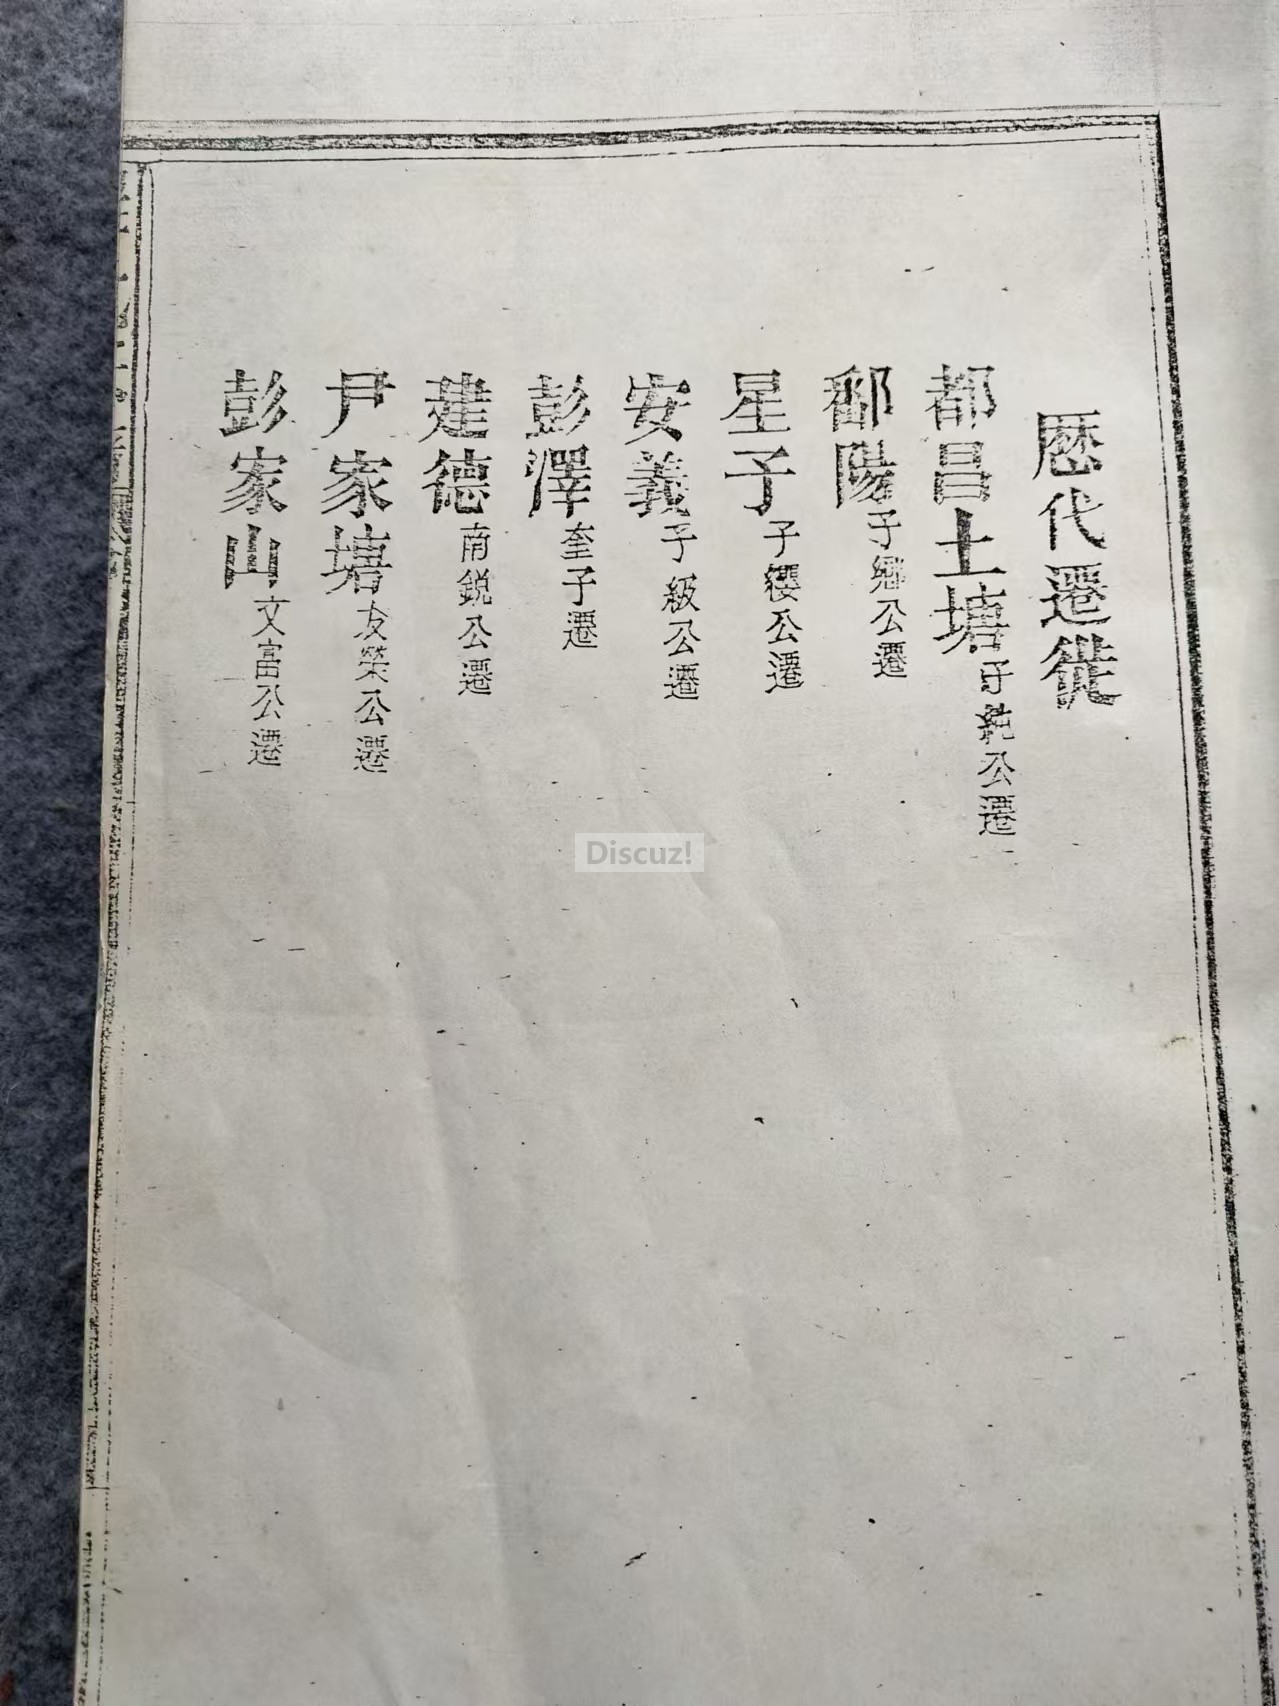 歷代遷徙
都昌土塘 子純公遷
鄱陽 子鄉公遷
星子 子纓公遷
安義 子級公遷
彭澤 奎子遷
建德 南銳公遷
尹家塘 友榮公遷
彭家山 文富公遷
Discuz!